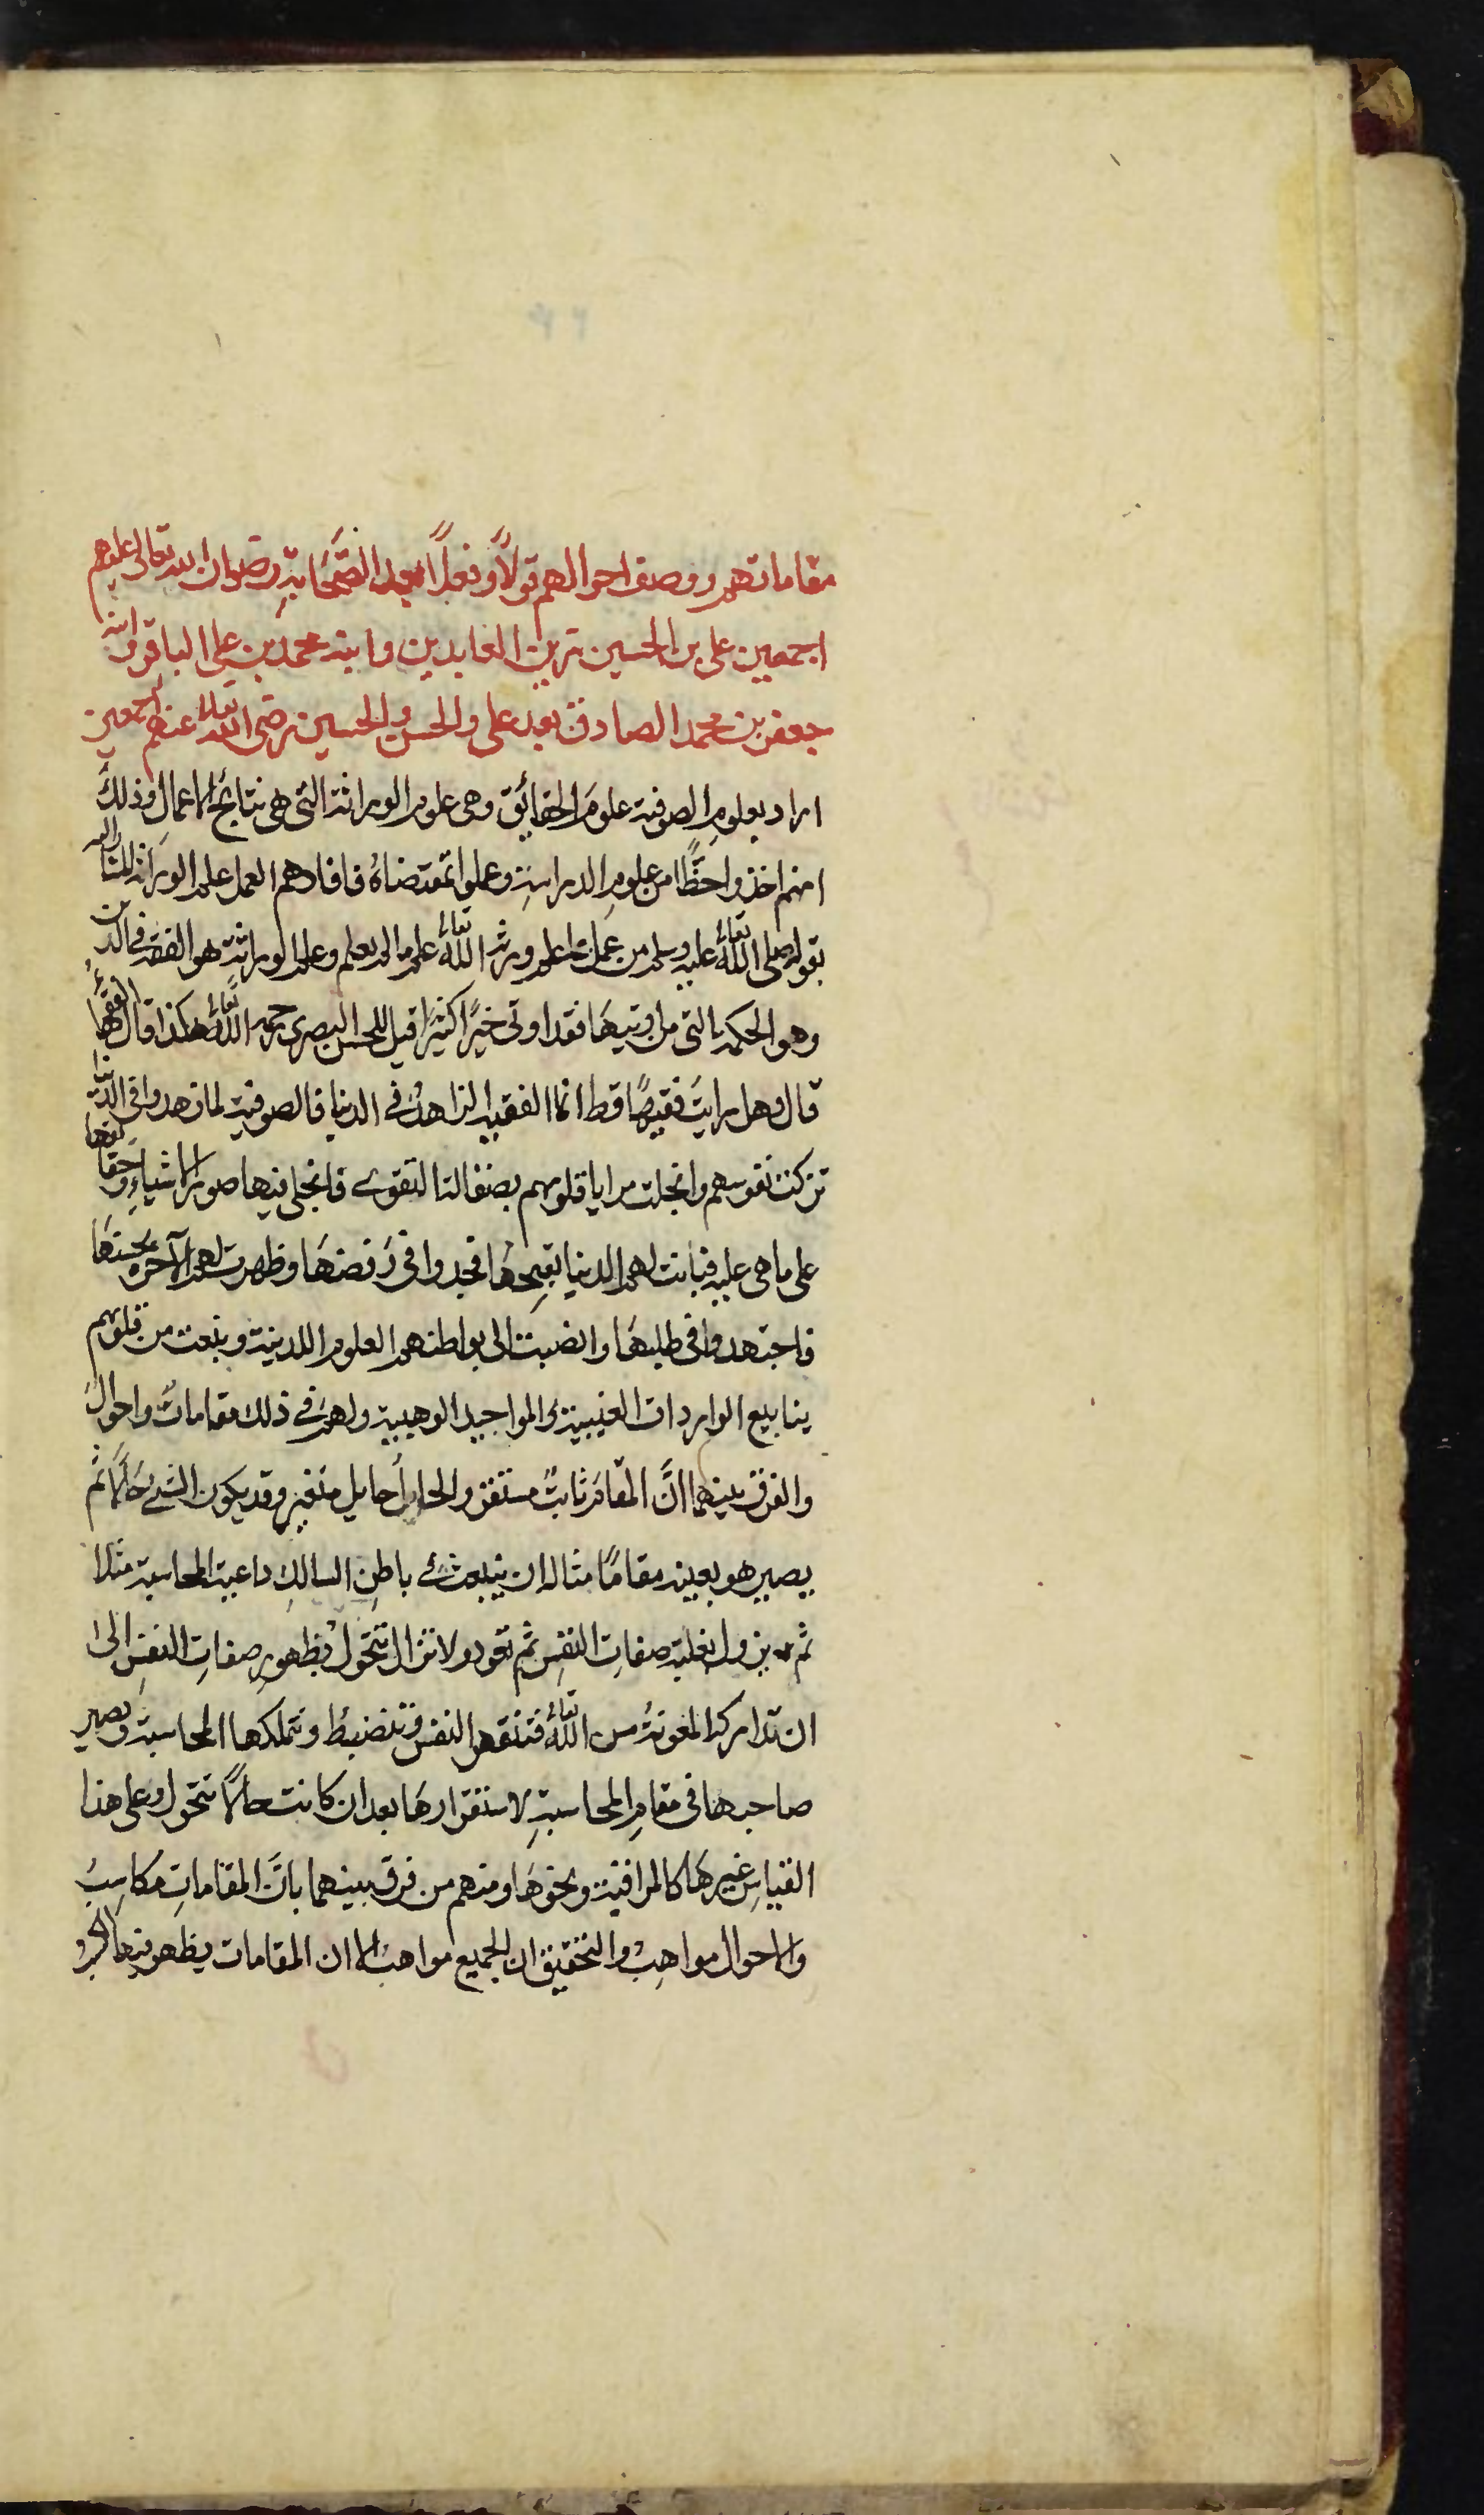 مقاماتهم ووصف احوالهم قولاً وفعلاً بعد الصَّحَابةِ رضوان الله تعالى عليهم
اجمعين على بن الحسين زين العابدين وابنه محمد بن على الباقر وابنه
جعفر بن محمد الصادق بعد على والحسن والحسين رضى الله تعالى عنهم اجمعين
اراد بعلوم الصوفية علومَ الحقائق وهى علوم الوراثة التى هى نتائج الاعمال وذلك
انهم اخذوا حظًّا من علوم الدراسةِ وعملوا بمقتضاهُ فافادهم العمل علم الوراثة المشار اليه
بقوله صلى اللّٰه تعالى عليه وسلم من عمل بما علم ورثه اللّٰه تعالى علم ما لم يعلم وعلم الوراثة هو الفقه فى الدين
وهو الحكمة التى من اوتيها فقد اوتى خيرًا كثيرًا قيل للحسن البصرى رحمه اللّٰه تعالى هكذا قال الفقهاءُ
قال وهل رايتَ فقيهًا قط انما الفقيه الزاهدُ فى الدنيا فالصوفية لما زهدوا فى الدنيا
تزكت نفوسهم وانجلت مرايا قلوبهم بصقالة التقوى فانجلى فيها صور الاشياءِ وحقائقها
على ما هى عليه فبانت لهم الدنيا بقبحِها فجدوا فى رَفضهَا وظهرت لهم الآخرة بحسنهَا
فاجتهدوا فى طلبهَا وانصبت الى بواطنهم العلوم اللدنية ونبعت من قلوبهم
ينابيع الواردات الغيبية والمواجيد الوهبية ولهم فى ذلك مقاماتٌ واحوالٌ
والفرق بينهما انَّ المقامَ ثابتٌ مستقر والحال حايل متغير وقد يكون الشئ حَالاً ثم
يصير هو بعينه مقامًا مثاله ان ينبعث فى باطنِ السالكِ داعية المحاسبة مثلا
ثم يزول لغلبة صفاتِ النفسِ ثم تعود ولا تزال تتحَوَّل بظهورِ صفاتِ النفسِ الى
ان تدارك المعونةُ من اللّٰه تعالى فتنقهر النفس وتنضبطُ وتتملكها المحاسبة ويصير
صاحبها فى مقامِ المحاسبةِ لاستقرارهَا بعد ان كانت حالاً تتحول وعلى هذا
القياسِ غيرهَا كالمراقبة ونحوهَا ومنهم من فرق بينهما بانَّ المقاماتِ مكاسِبُ
والاحوال مواهِبُ والتحقيق ان الجميع مواهبُ الا ان المقامات يظهر فيها الكسب و